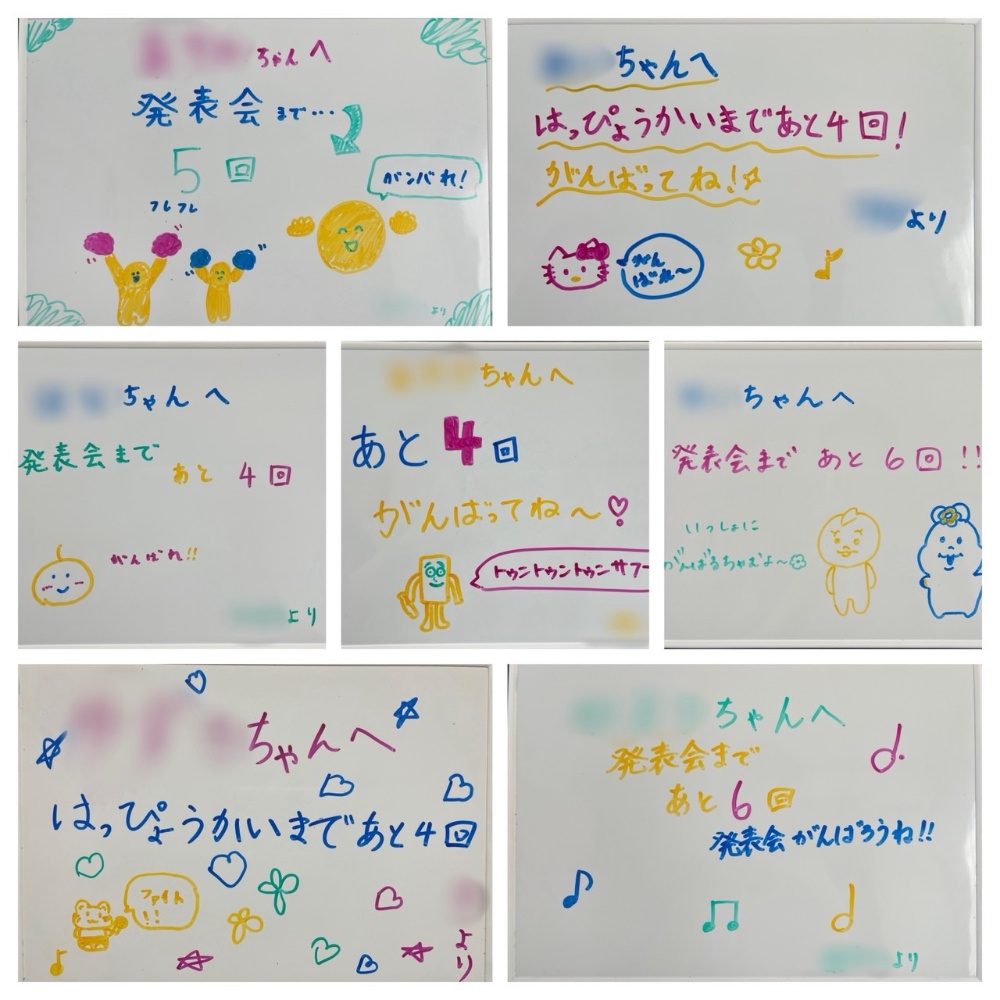 ちゃんへ
発表会まで…
5回
フレフレ
ガンバれ!
より
ちゃんへ
はっぴょうかいまであと4回!
がんばってね!
より
がん
ばれ〜
ちゃんへ
発表会まで
あと 4回
がんばれ!!
より
ちゃんへ
あと4回
がんばってね〜
トゥントゥントゥンサフー
ちゃんへ
発表会まで あと 6回!!
いっしょに
がんばるちゃむよ〜
ちゃんへ
はっぴょうかいまであと4回
ファイト
!!
より
ちゃんへ
発表会まで
あと6回
発表会がんばろうね!!
より